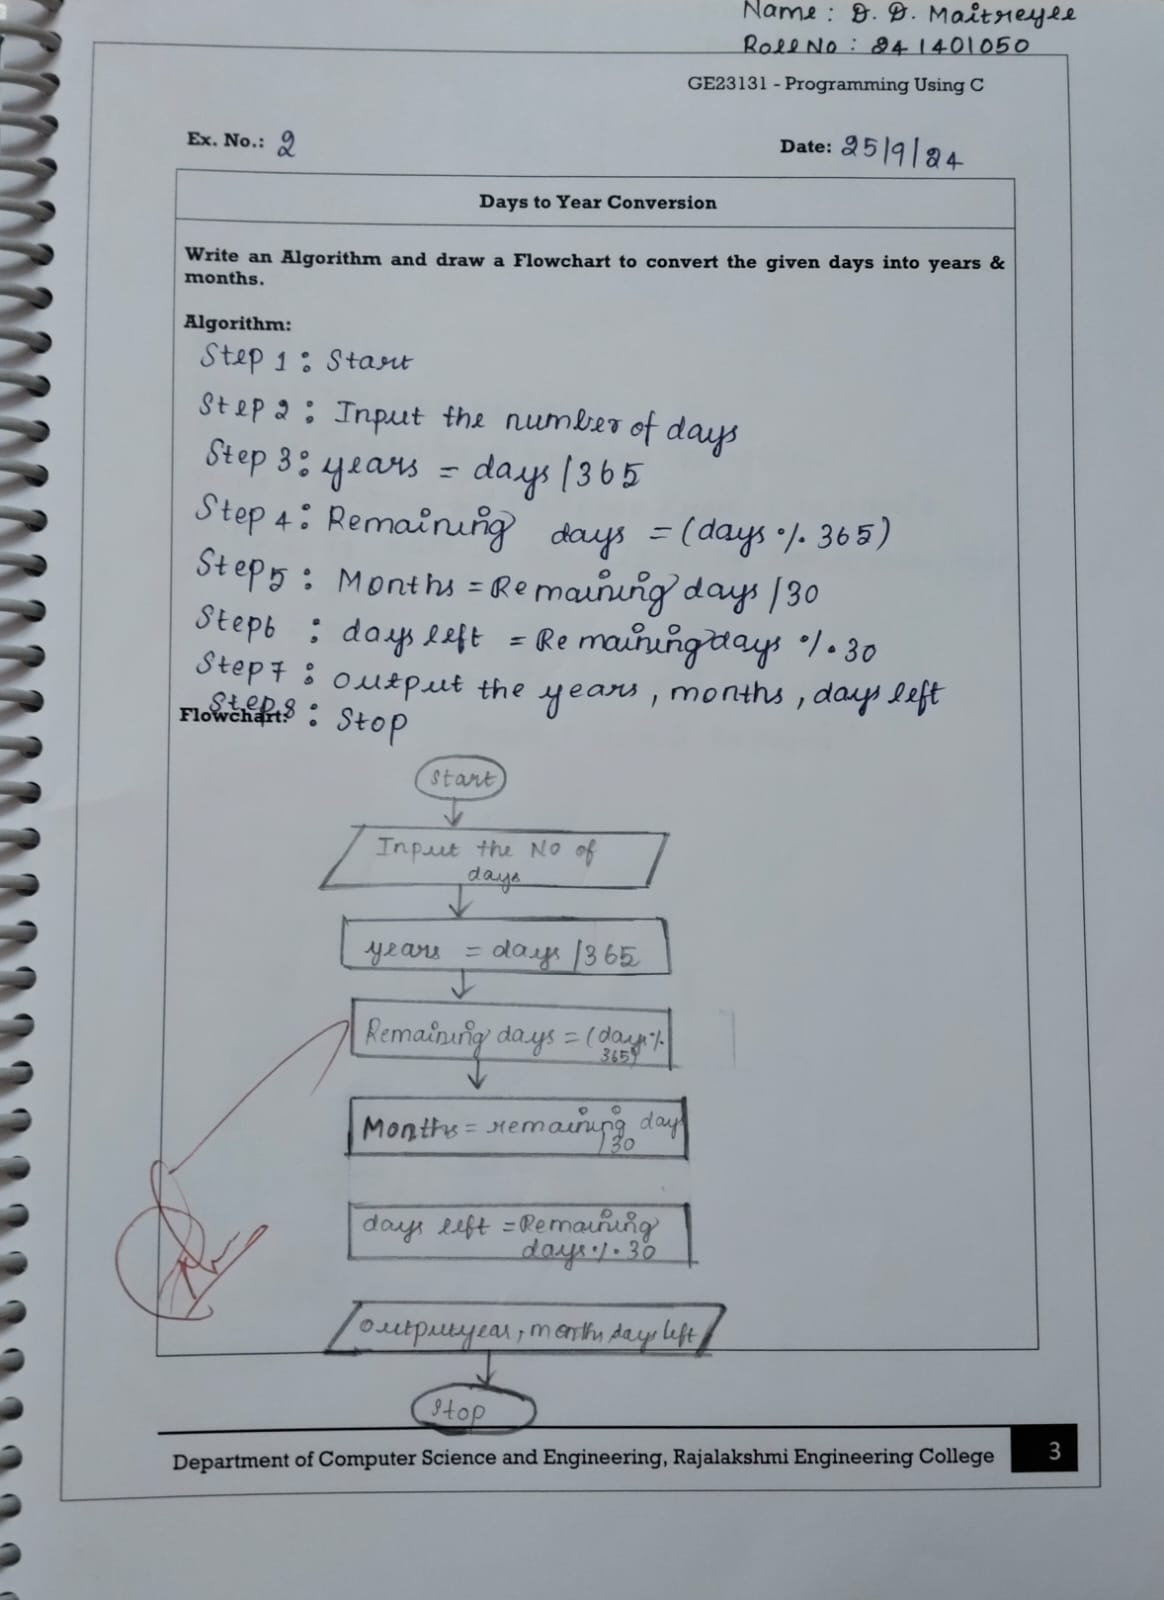 Name : D. D. Maitreyee
Roll No : 241401050
GE23131 - Programming Using C
Ex. No.: 2
Date: 25/9/24
Days to Year Conversion
Write an Algorithm and draw a Flowchart to convert the given days into years &
months.
Algorithm:
Step 1 : Start
Step 2 : Input the number of days
Step 3 : years = days /365
Step 4 : Remaining days = (days % 365)
Step5 : Months = Remaining days /30
Step6 : days left = Remaining days % 30
Step7 : output the years, months, days left
Step8 : Stop
Flowchart:
Start
Input the No of
days
years = days /365
Remaining days = (days %
365)
Months = remaining day
/30
days left = Remaining
days % 30
output year, month, days left
Stop
Department of Computer Science and Engineering, Rajalakshmi Engineering College
3